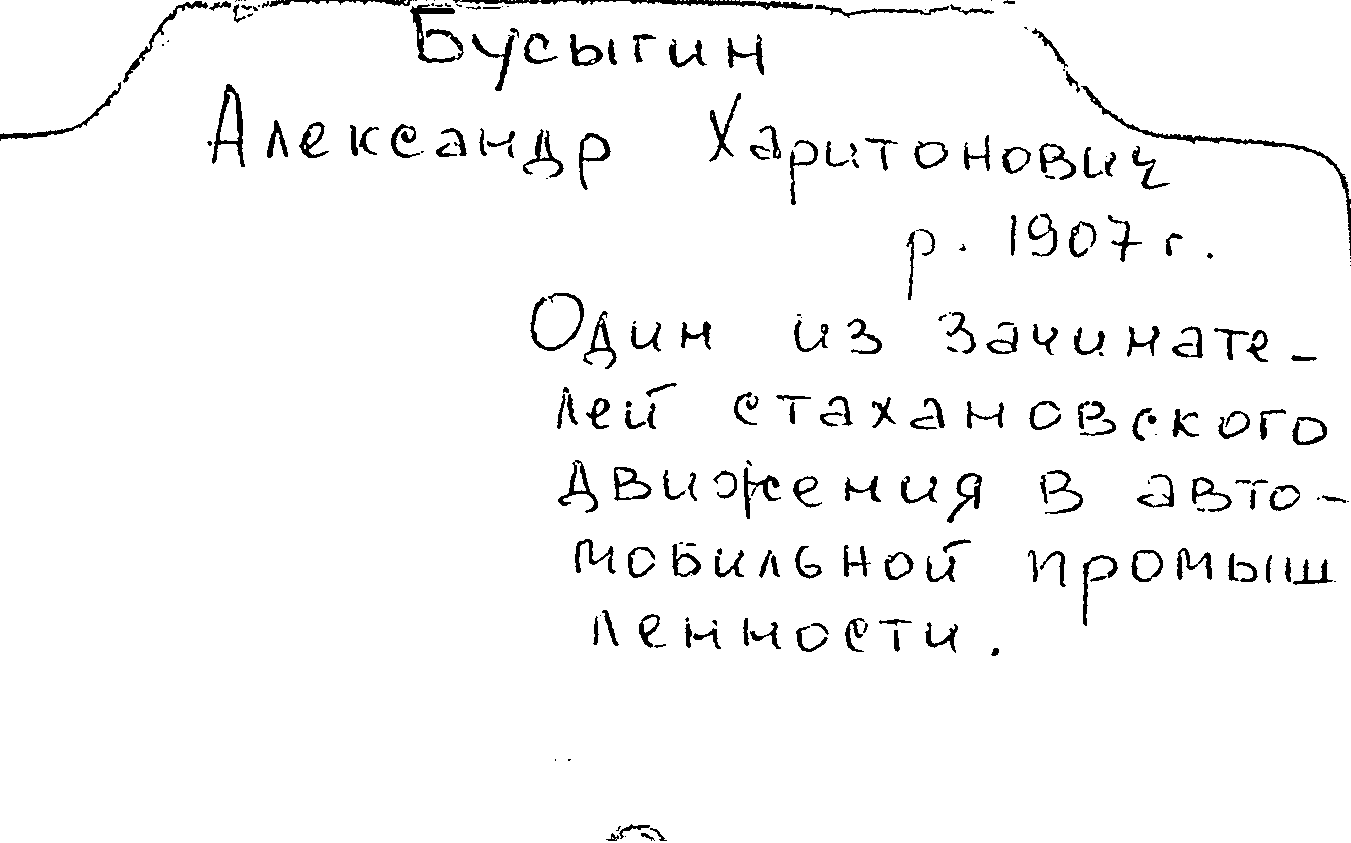 Бусыгин
Александр Харитонович
р. 1907 г.
Один из зачинате-
лей стахановского
движения в авто-
мобильной промыш
ленности.